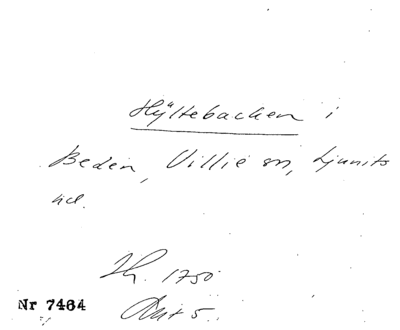 Hyltebacken i
Beden, Villie sn, Ljunits
hd.
1750
Nr 7464